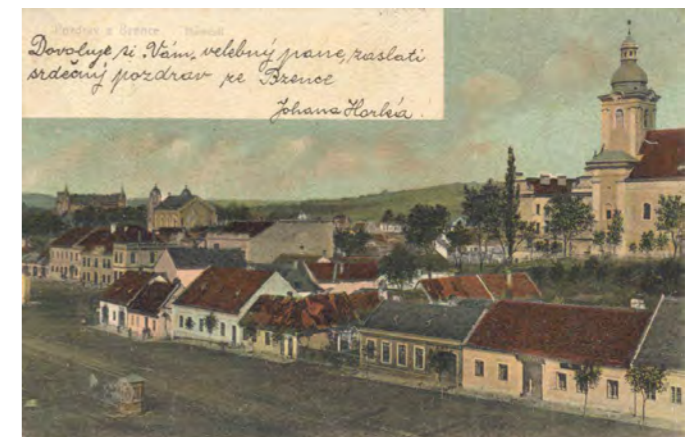 Pozdrav z Bzence Náměstí
Dovoluje si Vám, velebný pane, zaslati
srdečný pozdrav ze Bzence
Johana